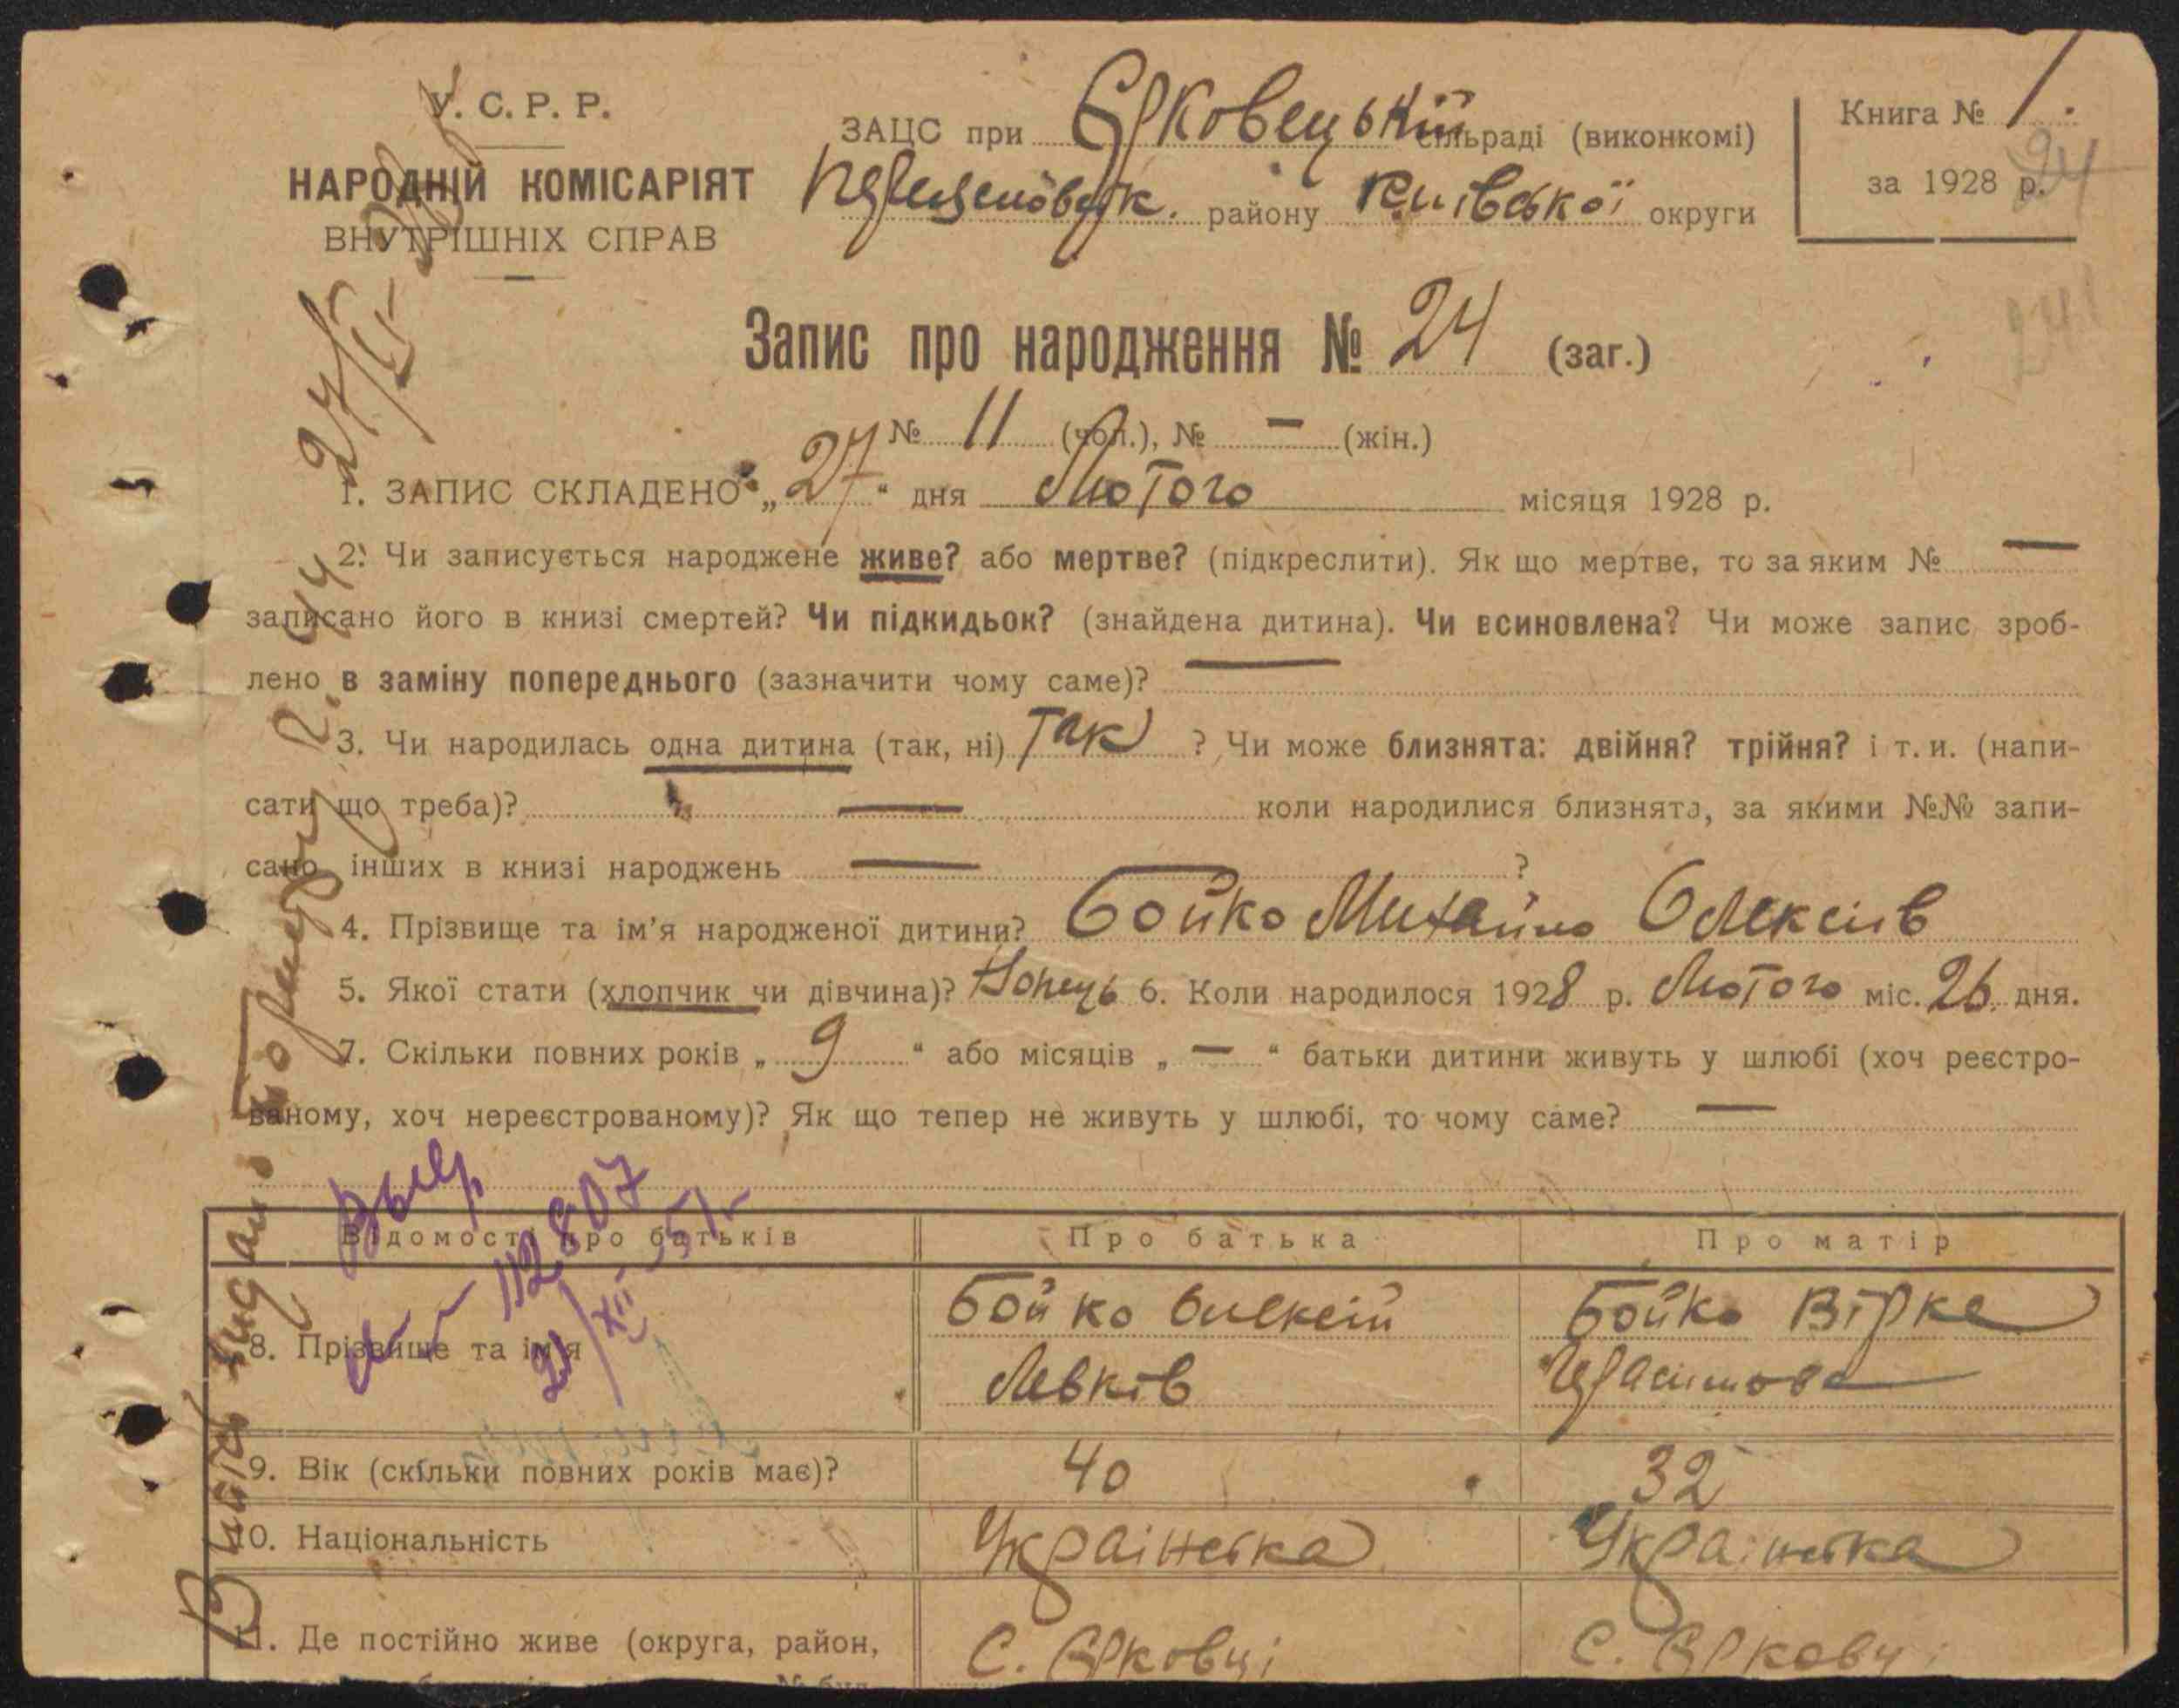 У. С. Р. Р.
НАРОДНІЙ КОМІСАРІЯТ
ВНУТРІШНІХ СПРАВ
ЗАЦС при Єрковецькій сільраді (виконкомі)
району Київської округи
Книга № 1.
за 1928 р.
24
Запис про народження № 24 (заг.)
№ 11 (чол.), № — (жін.)
1. ЗАПИС СКЛАДЕНО „27“ дня Лютого місяця 1928 р.
2. Чи записується народжене живе? або мертве? (підкреслити). Як що мертве, то за яким № —
записано його в книзі смертей? Чи підкидьок? (знайдена дитина). Чи всиновлена? Чи може запис зроб-
лено в заміну попереднього (зазначити чому саме)? —
3. Чи народилась одна дитина (так, ні) Так ? Чи може близнята: двійня? трійня? і т. и. (напи-
сати що треба)? — коли народилися близнята, за якими №№ запи-
сано інших в книзі народжень — ?
4. Прізвище та ім’я народженої дитини? Бойко Михайло Олексіїв
5. Якої стати (хлопчик чи дівчина)? 6. Коли народилося 1928 р. Лютого міс. 26. дня.
7. Скільки повних років „ 9 “ або місяців „ — “ батьки дитини живуть у шлюбі (хоч реєстро-
ваному, хоч нереєстрованому)? Як що тепер не живуть у шлюбі, то чому саме? —
Відомості про батьків Про батька Про матір
8. Прізвище та ім’я Бойко Олексій Бойко Вірка
Левків
9. Вік (скільки повних років має)? 40 32
10. Національність Українська Українська
11. Де постійно живе (округа, район, С. Єрковці С. Єрковці
112807
21/XII-51